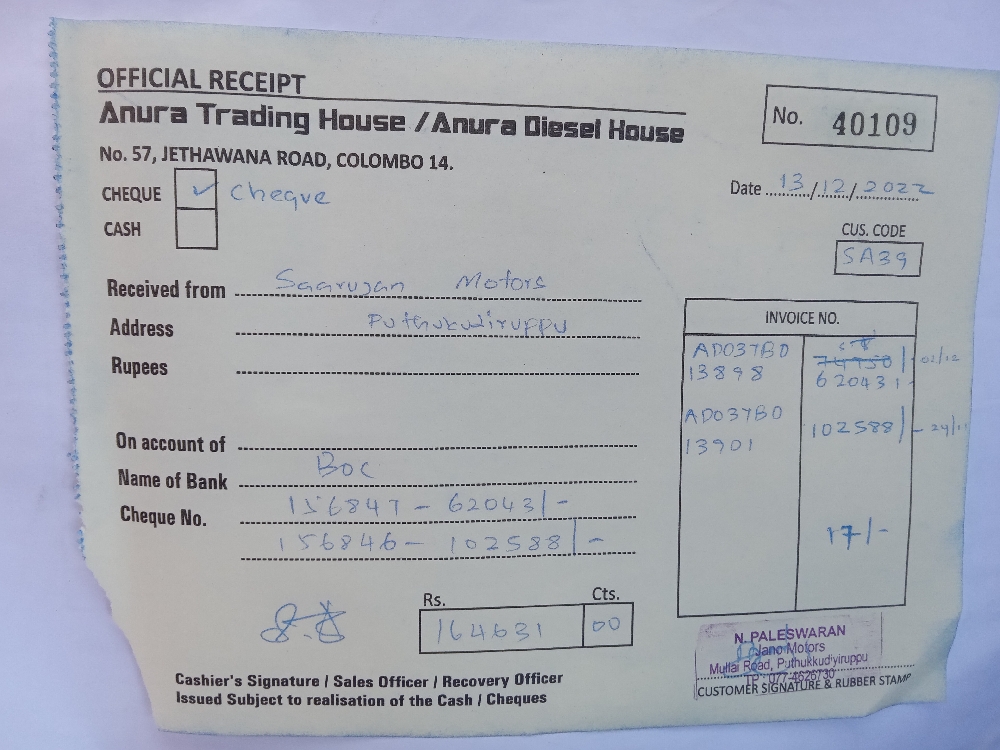 OFFICIAL RECEIPT
Anura Trading House / Anura Diesel House
No. 57, JETHAWANA ROAD, COLOMBO 14.
No. 40109
CHEQUE ✓ Cheque
CASH
Date 13/12/2022
CUS. CODE
SA39
Received from Saarujan Motors
Address Puthukudiruppu
Rupees
On account of
Name of Bank BOC
Cheque No. 156847 - 62043/-
156846 - 102588/-
INVOICE NO.
AD037BD 74750/- 02/12
13898 62043/-
AD037BD 102588/- 29/11
13901
17/-
Rs. Cts.
164631 00
Cashier's Signature / Sales Officer / Recovery Officer
Issued Subject to realisation of the Cash / Cheques
N. PALESWARAN
Jano Motors
Mullai Road, Puthukkudiyiruppu
TP: 077-4626730
CUSTOMER SIGNATURE & RUBBER STAMP